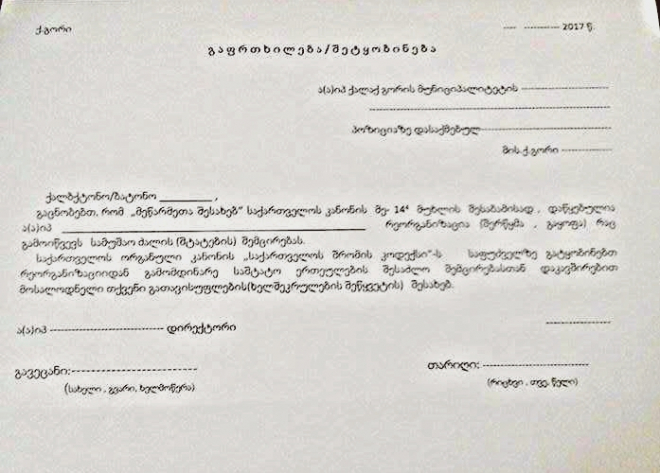 ქ.გორი ---- ----------- 2017 წ.
გაფრთხილება/შეტყობინება
ა(ა)იპ ქალაქ გორის მუნიციპალიტეტის -------------------
--------------------------------------------------
პოზიციაზე დასაქმებულ----------------------------
მის.ქ.გორი ---------------
ქალბეტონო/ბატონო _________ ,
გაცნობებთ, რომ „მეწარმეთა შესახებ“ საქართველოს კანონის მე- 14⁴ მუხლის შესაბამისად , დაწყებულია
ა(ა)იპ ________________________________ რეორგანიზაცია (შერწყმა , გაყოფა) რაც
გამოიწვევს სამუშაო ძალის (შტატების) შემცირებას.
საქართველოს ორგანული კანონის „საქართველოს შრომის კოდექსი“-ს საფუძველზე გატყობინებთ
რეორგანიზაციიდან გამომდინარე საშტატო ერთეულების შესაძლო შემცირებასთან დაკავშირებით
მოსალოდნელი თქვენი გათავისუფლების(ხელშეკრულების შეწყვეტის) შესახებ.
ა(ა)იპ ------------------------- დირექტორი --------------
გავეცანი:--------------------------- თარიღი: -----------------------
(სახელი , გვარი, ხელმოწერა) (რიცხვი , თვე, წელი)